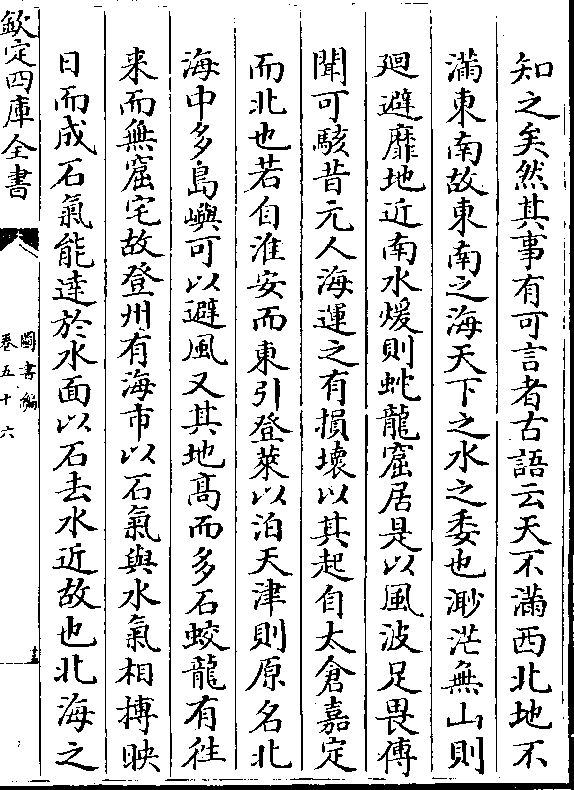 知之矣然其事有可言者古語云天不滿西北地不
滿東南故東南之海天下之水之委也渺茫無山則
廻避靡地近南水煖則蛇龍窟居是以風波足畏傳
聞可駭昔元人海運之有損壞以其起自太倉嘉定
而北也若自淮安而東引登萊以泊天津則原名北
海中多島嶼可以避風又其地髙而多石蛟龍有往
来而無窟宅故登州有海市以石氣與水氣相搏映
日而成石氣能達於水面以石去水近故也北海之
欽定四庫全書
圖書編
卷五十六